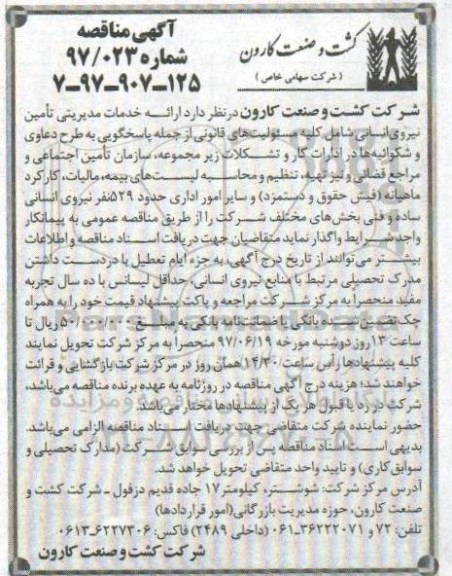 کشت و صنعت کارون
( شرکت سهامی خاص )
آگهی مناقصه
شماره ۹۷/۰۲۳
۷-۹۷-۹۰۷-۱۲۵
شرکت کشت و صنعت کارون در نظر دارد ارائه خدمات مدیریتی تأمین
نیروی انسانی شامل کلیه مسئولیت‌های قانونی از جمله پاسخگویی به طرح دعاوی
و شکوائیه‌ها در ادارات کار و تشکلات زیر مجموعه، سازمان تأمین اجتماعی و
مراجع قضائی و نیز تهیه، تنظیم و محاسبه لیست‌های بیمه، مالیات، کارکرد
ماهیانه (فیش حقوق و دستمزد) و سایر امور اداری حدود ۵۲۹نفر نیروی انسانی
ساده و فنی بخش‌های مختلف شرکت را از طریق مناقصه عمومی به پیمانکار
واجد شرایط واگذار نماید متقاضیان جهت دریافت اسناد مناقصه و اطلاعات
بیشتر می‌توانند از تاریخ درج آگهی، به جزء ایام تعطیل با در دست داشتن
مدرک تحصیلی مرتبط با منابع نیروی انسانی، حداقل لیسانس با ده سال تجربه
مفید منحصراً به مرکز شرکت مراجعه و پاکت پیشنهاد قیمت خود را به همراه
چک تضمین شده بانکی یا ضمانت‌نامه بانکی به مبلغ ریال تا
ساعت ۱۳ روز دوشنبه مورخه ۹۷/۰۶/۱۹ منحصراً به مرکز شرکت تحویل نمایند
کلیه پیشنهادها راس ساعت ۱۴/۳۰ همان روز در مرکز شرکت بازگشایی و قرائت
خواهند شد؛ هزینه درج آگهی مناقصه در روزنامه به عهده برنده مناقصه می‌باشد،
شرکت در رد یا قبول هر یک از پیشنهادها مختار می‌باشد.
حضور نماینده شرکت متقاضی جهت دریافت اسناد مناقصه الزامی می‌باشد.
بدیهی است اسناد مناقصه پس از بررسی سوابق شرکت (مدارک تحصیلی و
سوابق کاری) و تایید واحد متقاضی تحویل خواهد شد.
آدرس مرکز شرکت: شوشتر، کیلومتر ۱۷ جاده قدیم دزفول ـ شرکت کشت و
صنعت کارون، حوزه مدیریت بازرگانی(امور قراردادها)
تلفن: ۷۲ و ۳۶۲۲۲۰۷۱-۰۶۱ (داخلی ۲۴۸۹) فاکس: ۶۲۲۷۳۰۶-۰۶۱۳
شرکت کشت و صنعت کارون